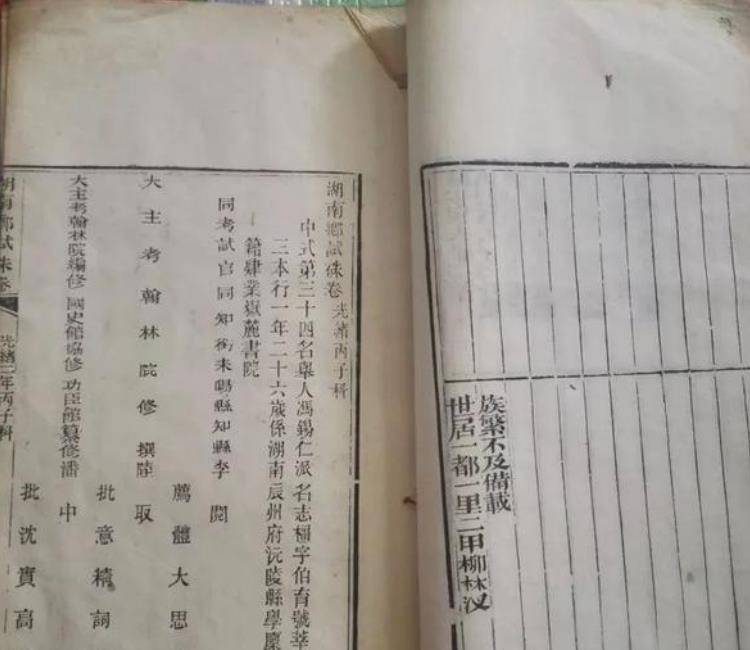 族繁不及備載
世居一都一里二甲柳林汊
湖南鄉試硃卷 光緒丙子科
中式第三十四名舉人馮錫仁派名志楣字伯育號莘
三本行一年二十六歲係湖南辰州府沅陵縣學廩
籍肄業嶽麓書院
同考試官同知銜耒陽縣知縣李 閱
薦 體大思
大主考翰林院修撰陸 取
批 意精詞
大主考翰林院編修 國史館協修 功臣館纂修潘 中
批 沈實高
湖南鄉試硃卷 光緒二年丙子科